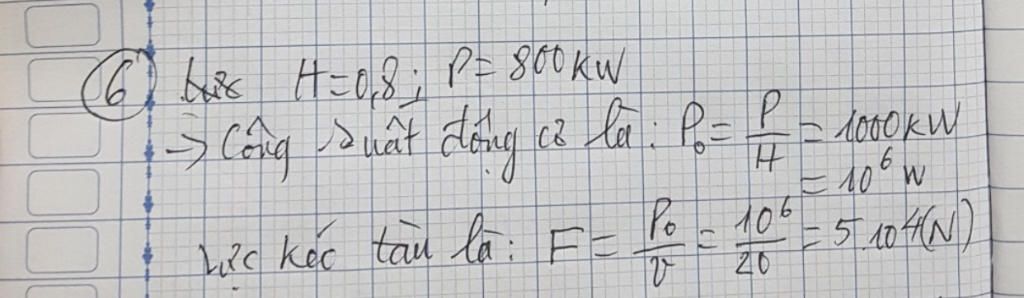 6 H = 0,8; P = 800 KW
→ Công suất động cơ là: P₀ = P/H = 1000 KW
= 10⁶ W
Lực kéc tàu là: F = P₀/v = 10⁶/20 = 5.10⁴ (N)